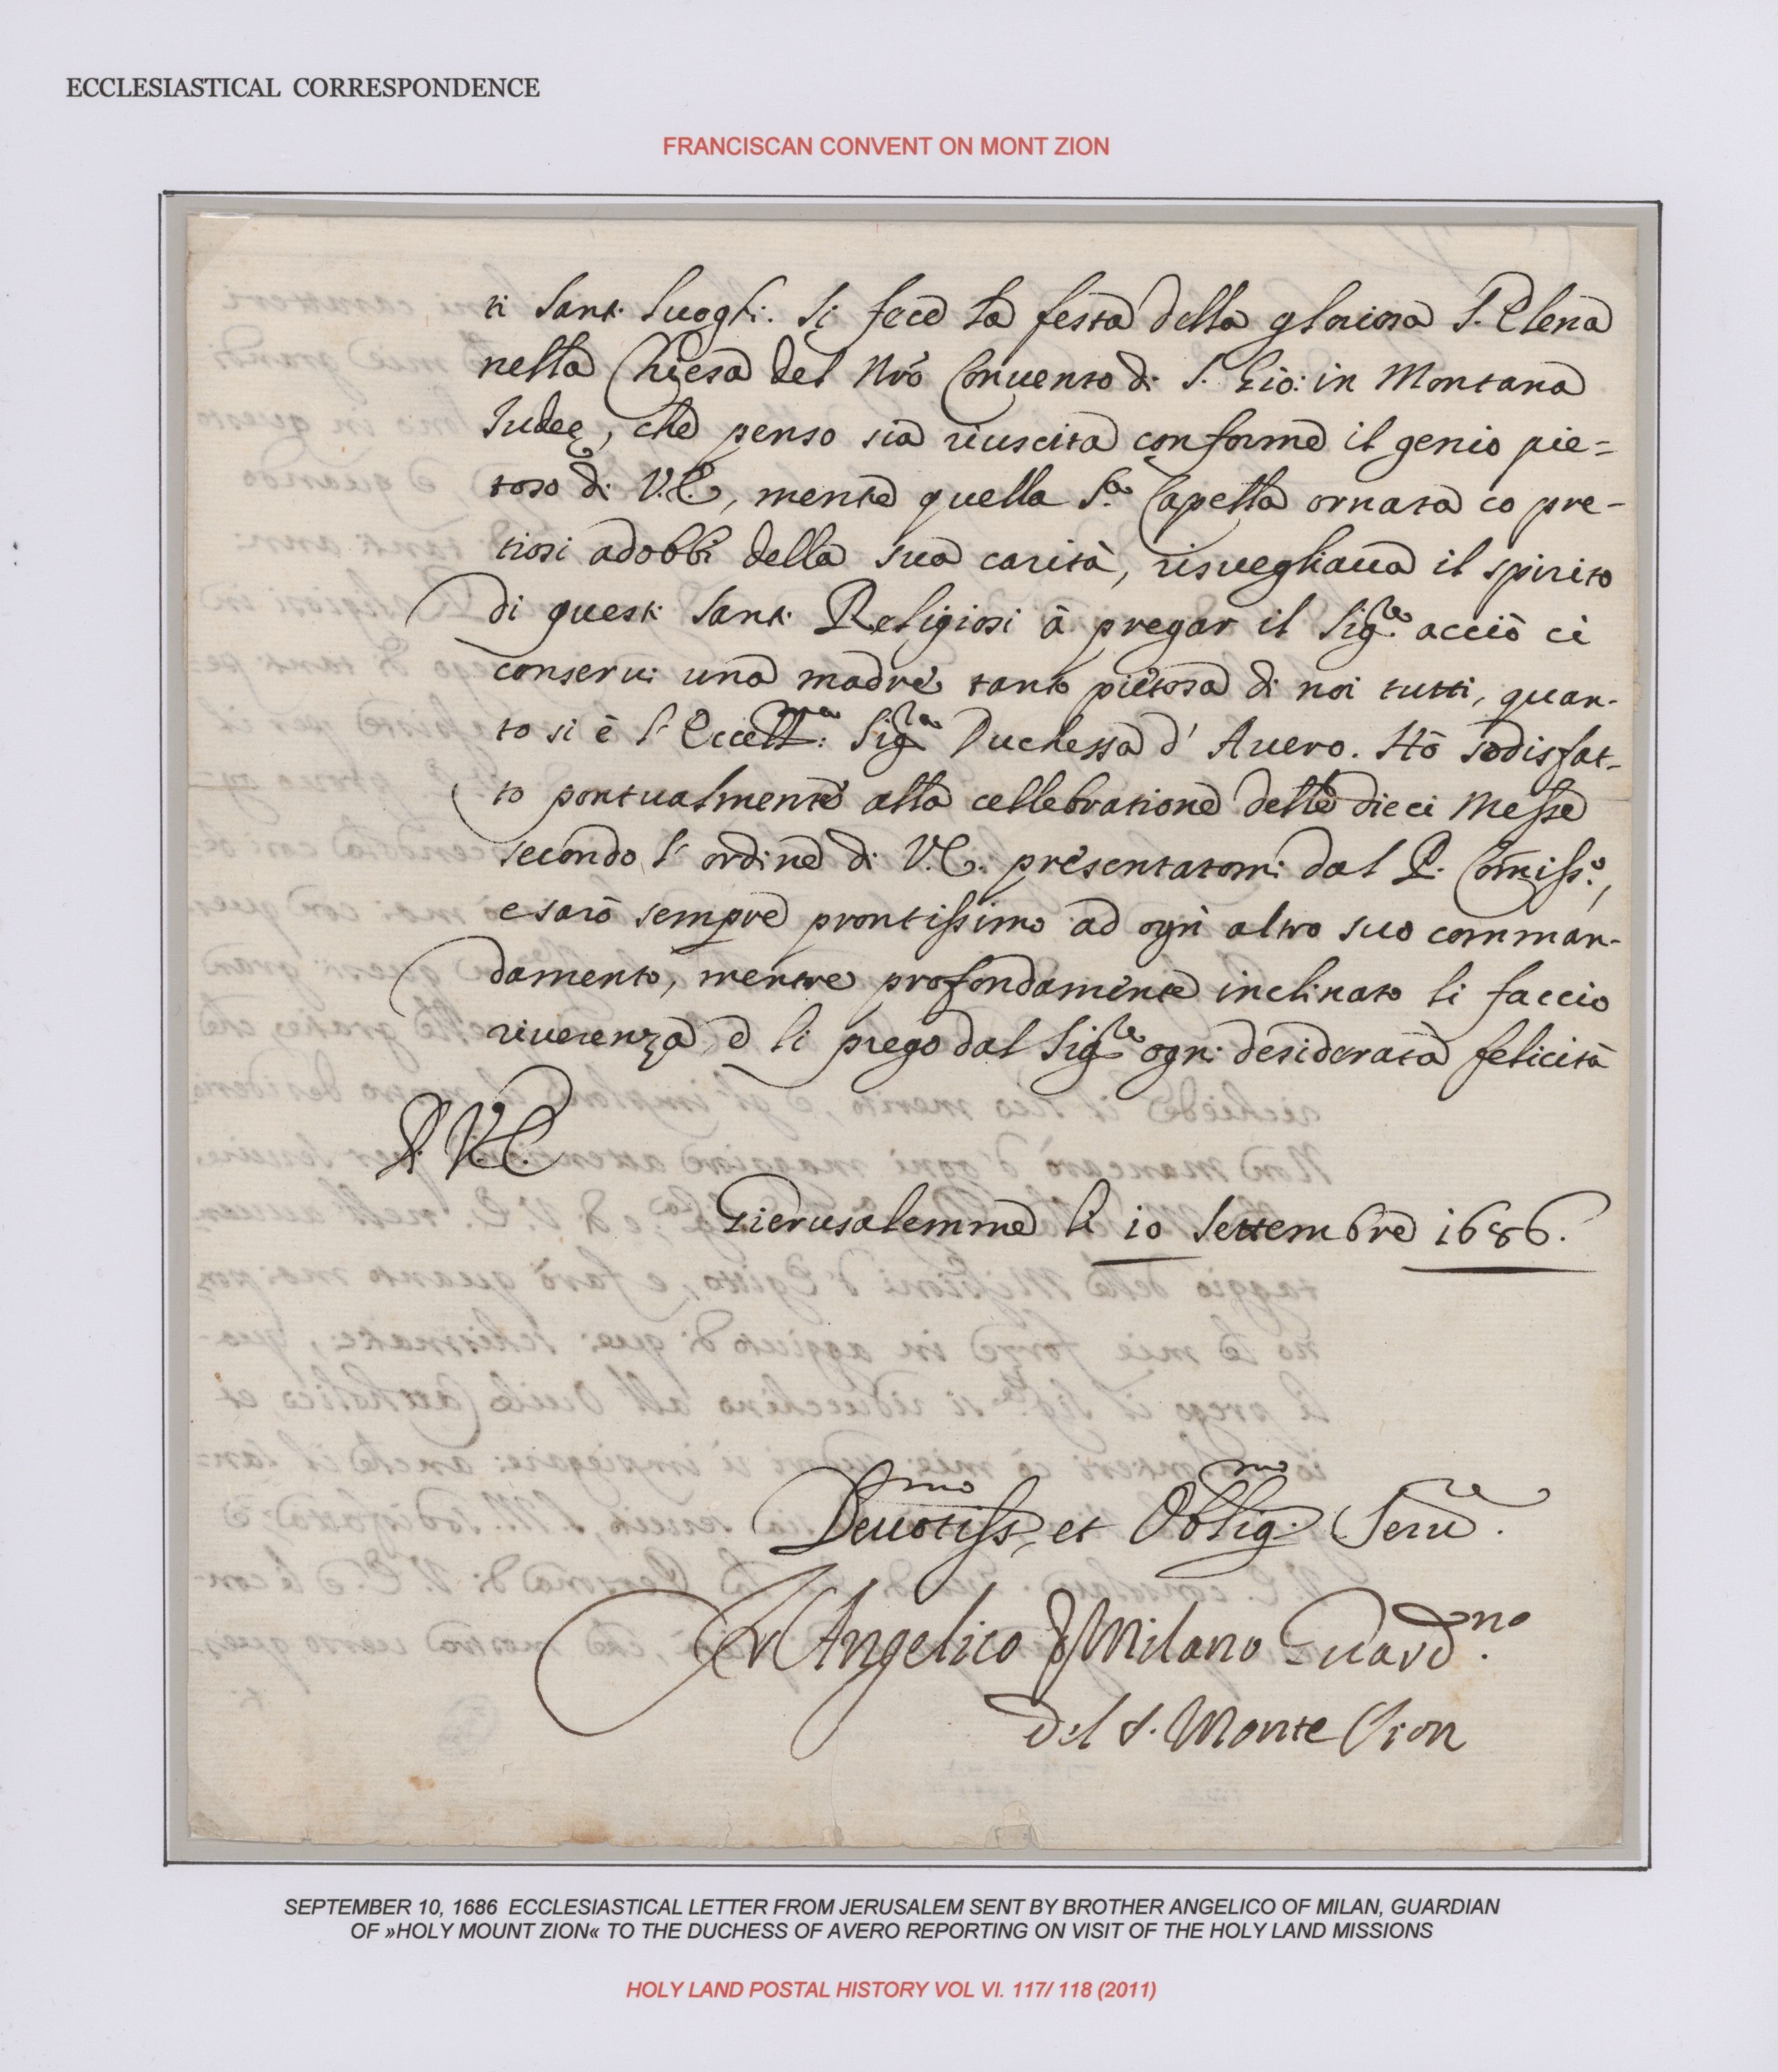 ECCLESIASTICAL CORRESPONDENCE
FRANCISCAN CONVENT ON MONT ZION
ti Santi Luoghi. Si fece la festa della gloriosa S. Elena
nella Chiesa del Nrõ Conuento di S. Gio: in Montana
Judeę, che penso sia riuscita conforme il genio pie=
toso di V.E., mentre quella S.ta Capella ornata cõ pre-
tiosi adobbi della sua carità, risvegliaua il spirito
di questi Santi Religiosi à pregar il Sig.re acciò ci
conserui una madre tanto pietosa di noi tutti, quan-
to si è l'Eccell.ma Sig.ra Duchessa d'Auero. Hò sodisfat-
to pontualmente alla cellebratione delle dieci Messe
secondo l'ordine di V.E. presentatomi dal P. Comiss.o,
e sarò sempre prontissimo ad ogni altro suo comman-
damento, mentre profondamente inclinato li faccio
riuerenza, e li prego dal Sig.re ogni desiderata felicità
D. V.E.
Gierusalemme li 10 Settembre 1686.
Deuotiss.mo et Oblig.mo Seru.re
Fr Angelico di Milano Guard.no
del S. Monte Sion
SEPTEMBER 10, 1686 ECCLESIASTICAL LETTER FROM JERUSALEM SENT BY BROTHER ANGELICO OF MILAN, GUARDIAN
OF »HOLY MOUNT ZION« TO THE DUCHESS OF AVERO REPORTING ON VISIT OF THE HOLY LAND MISSIONS
HOLY LAND POSTAL HISTORY VOL VI. 117/ 118 (2011)